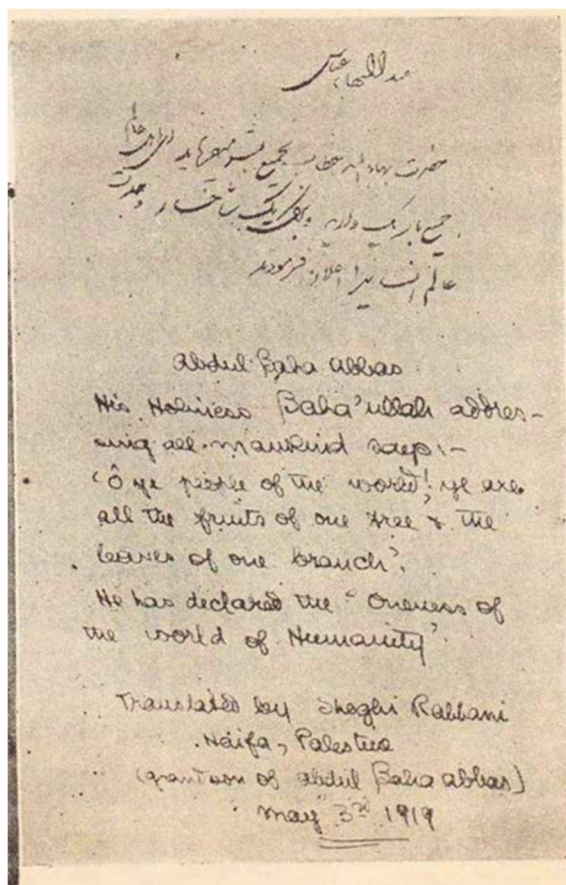 عبدالبهاء عباس
حضرت بهاءالله خطاب بجمیع بشر میفرماید ای اهل عالم
جمیع بار یک دارید و برگ یک شاخسار وحدت
عالم انسانیرا اعلان فرمودند
Abdul Baha Abbas
His Holiness Baha'ullah addres-
sing all mankind says:-
'O ye people of the world! ye are
all the fruits of one tree & the
leaves of one branch'.
He has declared the "Oneness of
the world of Humanity"
Translated by Shoghi Rabbani
Haifa, Palestine
(grandson of Abdul Baha Abbas)
May 3rd 1919